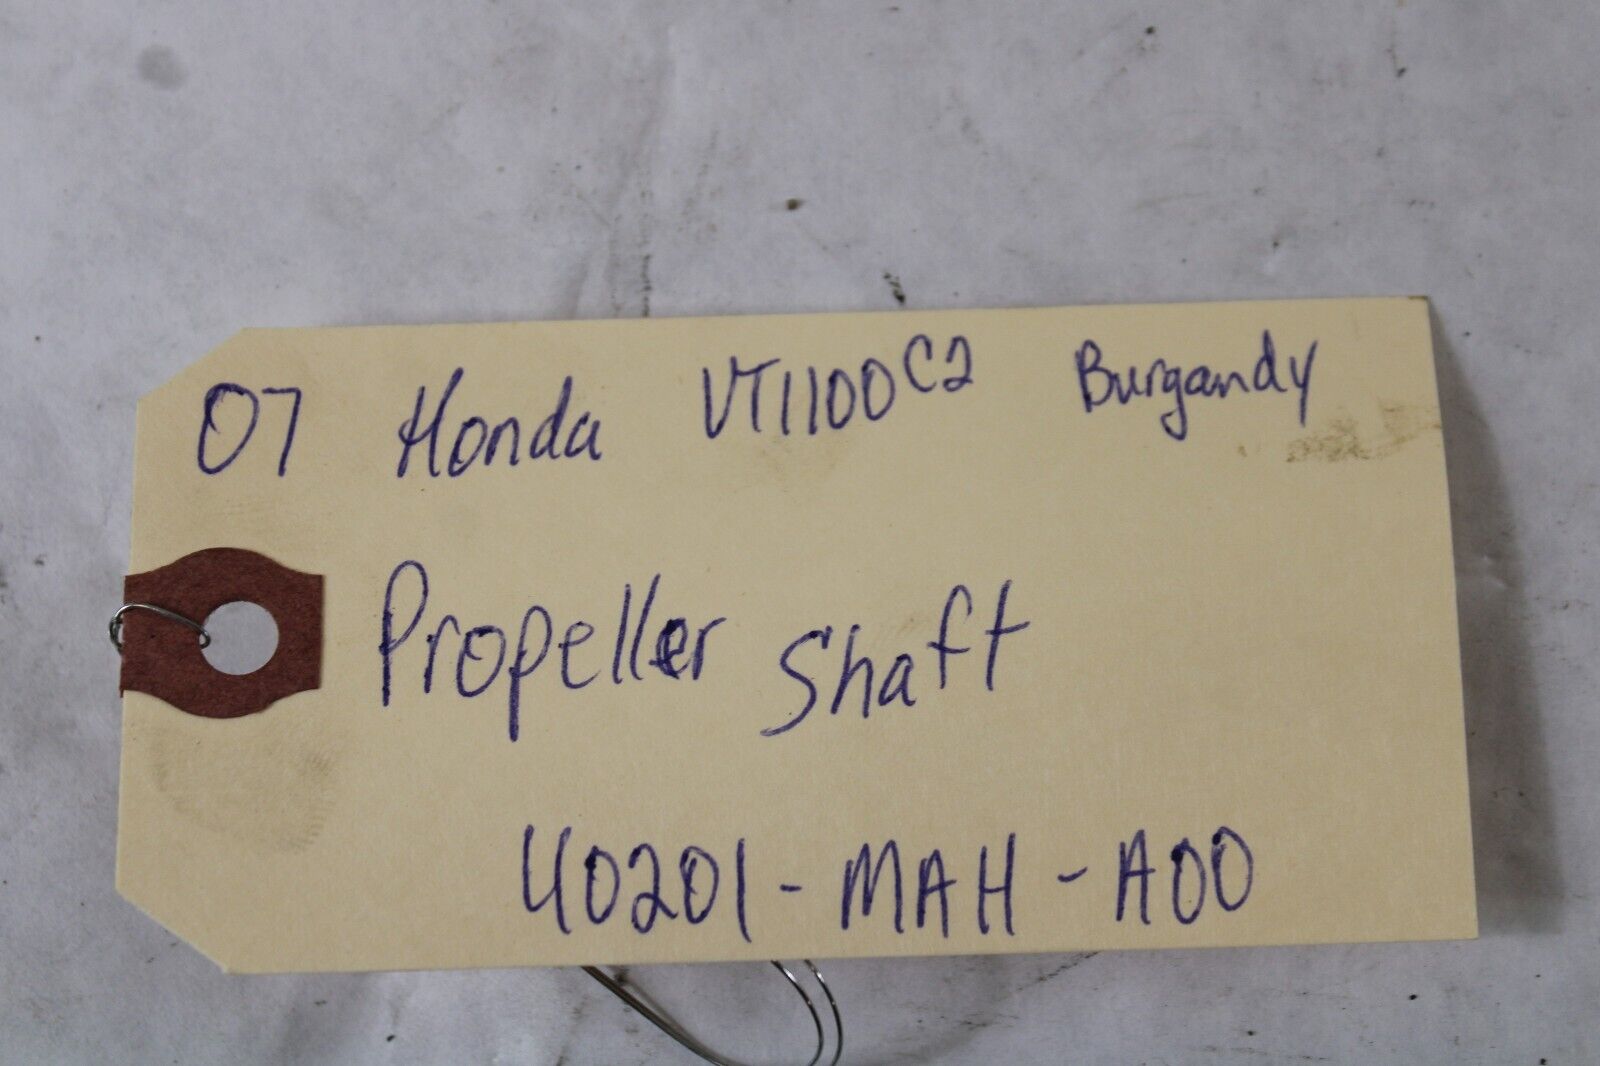 07 Honda VT1100C2 Burgandy
Propeller Shaft
40201-MAH-A00